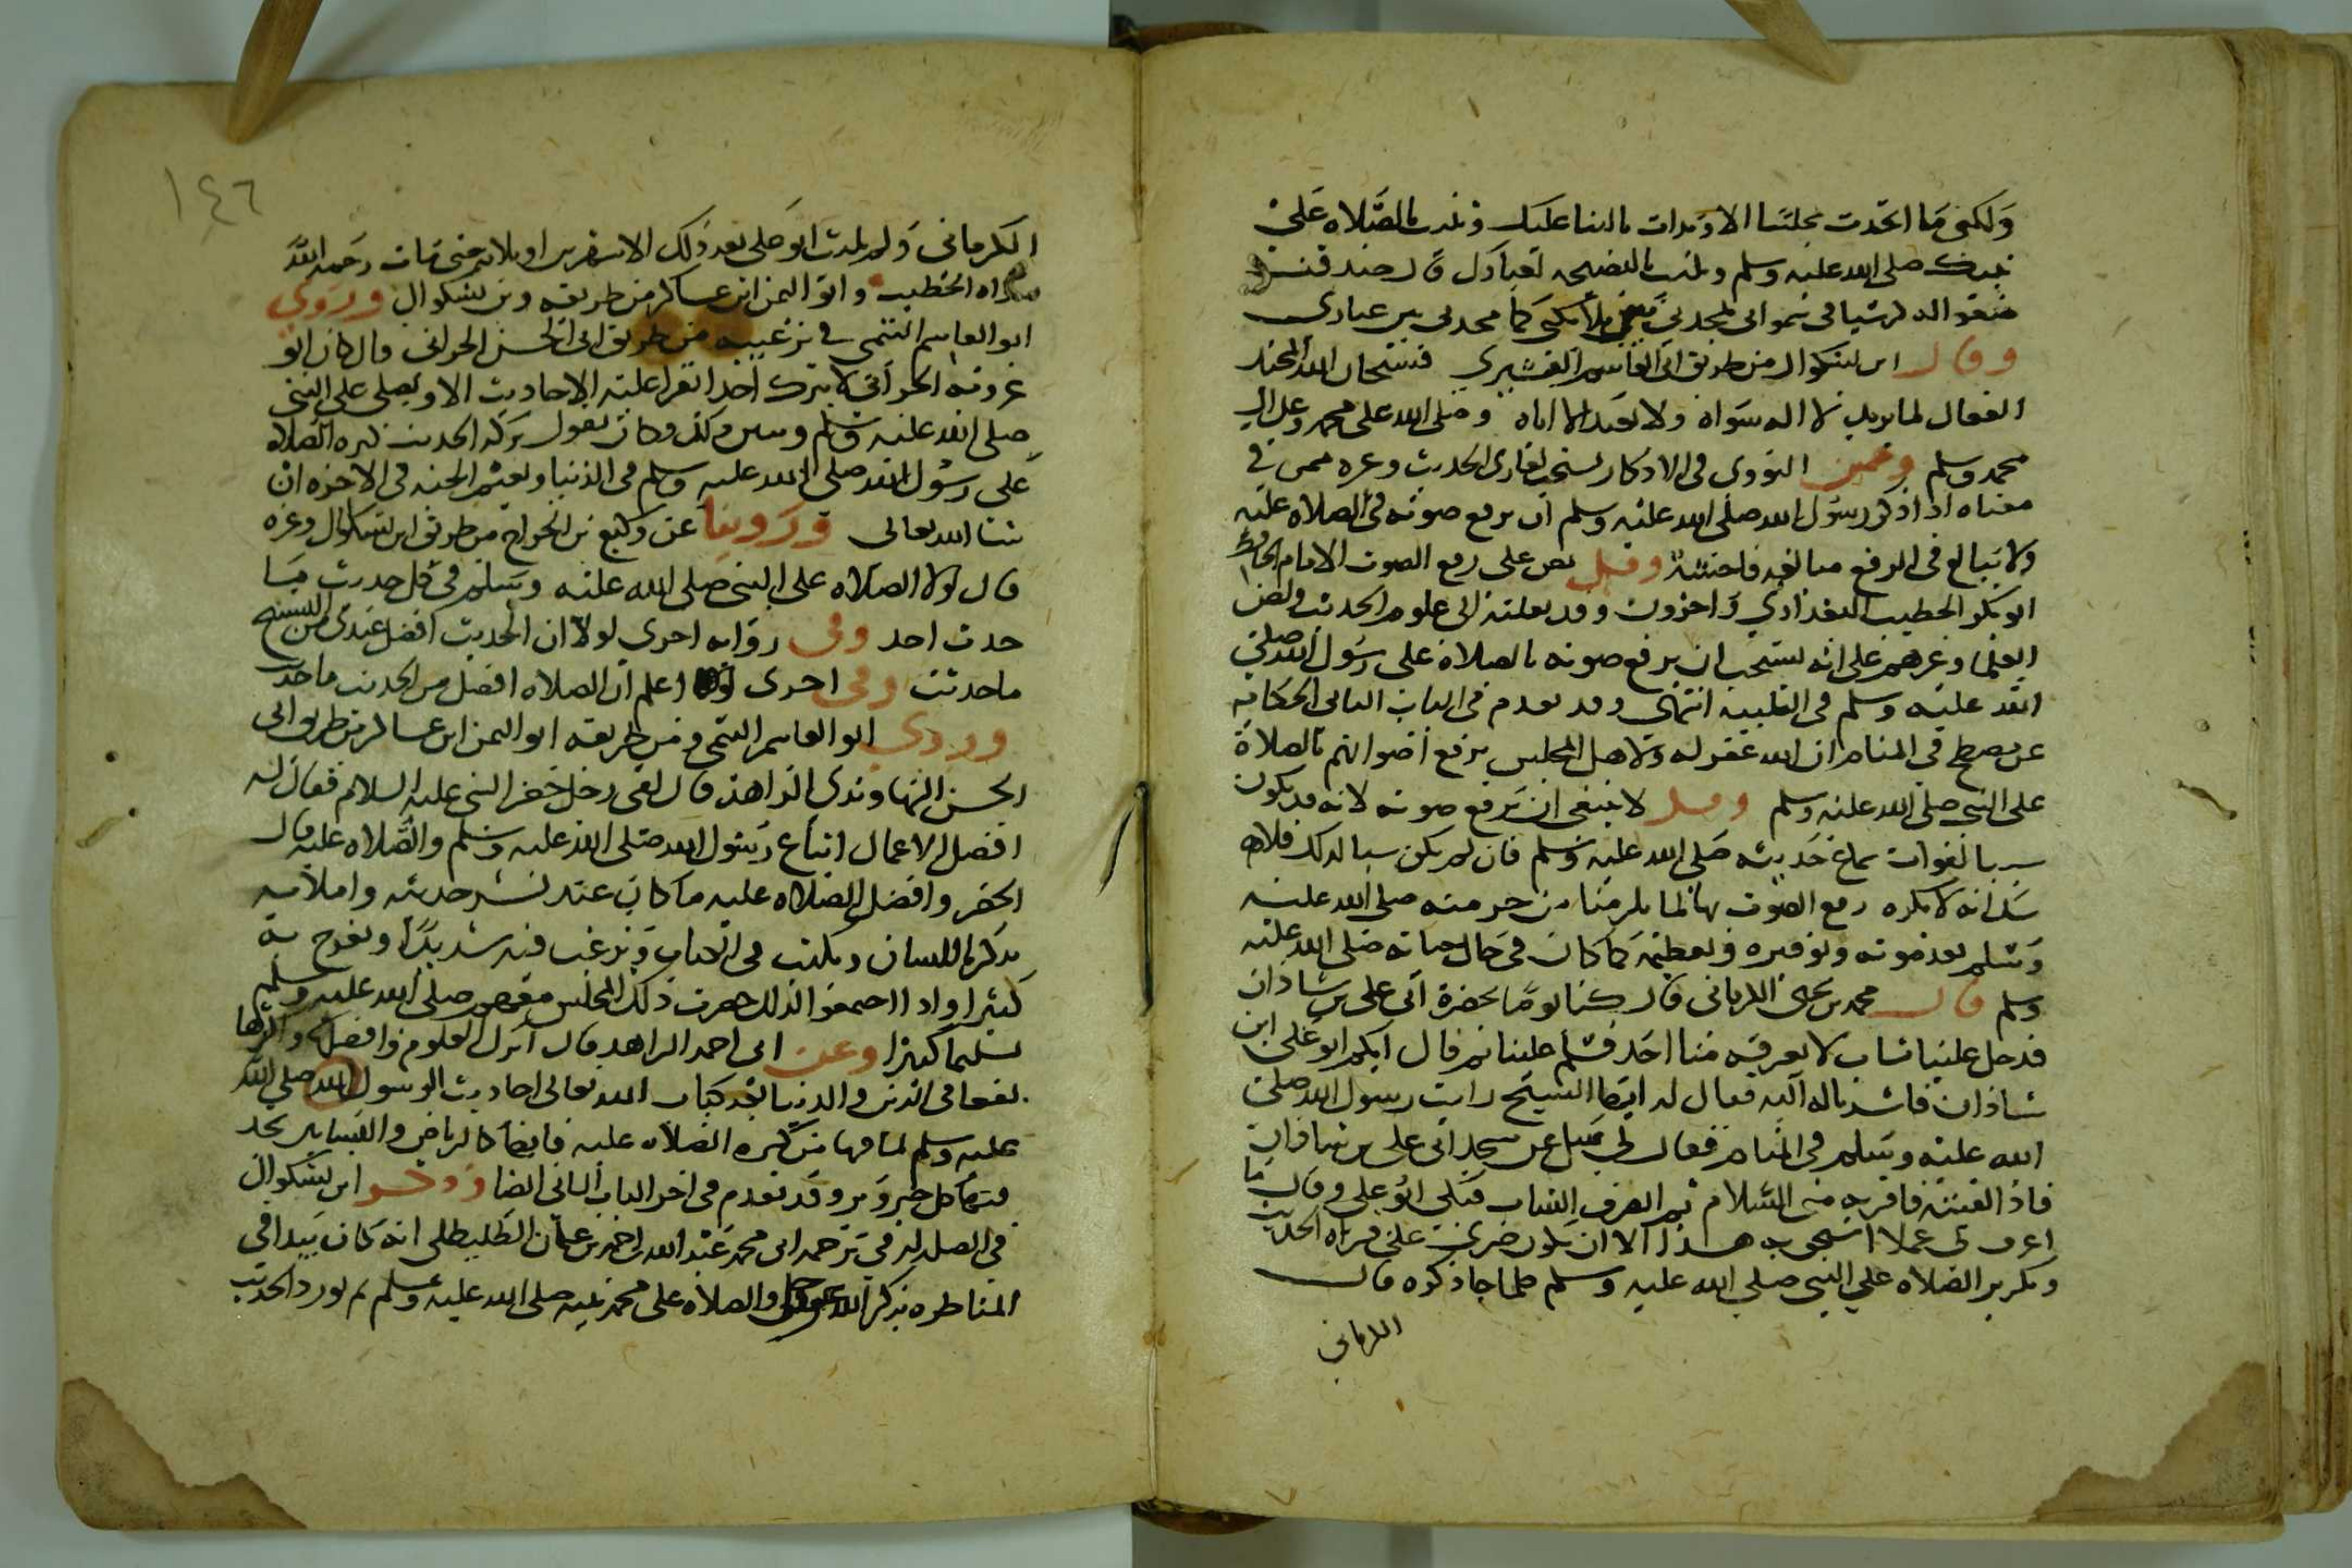 ولكني ما اتخذت مجلسا الا وبدات بالثنا عليك وثنيت بالصلاه على
نبيك صلى الله عليه وسلم وثلثت بالنصيحه لعبادك قال صدق
ضعوا له كرسيا في سمواتي يمجدني بين ملائكتي كما مجدني بين عبادي
وقال ابن بشكوال من طريق ابي القاسم القشيري فسبحان الله المجيد
الفعال لما يريد لا اله سواه ولا نعبد الا اياه وصلى الله على محمد وعلى ال
محمد وسلم وعن النووي في الاذكار يستحب لقاري الحديث وغيره ممن في
معناه اذا ذكر رسول الله صلى الله عليه وسلم ان يرفع صوته في الصلاه عليه
ولا يبالغ في الرفع مبالغه فاحشة وقيل نص على رفع الصوت الامام الحافظ
ابو بكر الخطيب البغدادي واخرون وقد نقلته الى علوم الحديث ونص
العلما وغيرهم على انه يستحب ان يرفع صوته بالصلاة على رسول الله صلى
الله عليه وسلم في التلبيه انتهى وقد تقدم في الباب الثاني الحكايه
عن مصطح في المنام ان الله غفر له ولاهل المجلس برفع اصواتهم بالصلاة
على النبي صلى الله عليه وسلم وقيل لا ينبغي ان يرفع صوته لانه قد يكون
سببا لفوات سماع حديثه صلى الله عليه وسلم فان لم يكن سببا لذلك فلا
شك انه لا يكره رفع الصوت بها لما يلزمنا من حرمته صلى الله عليه
وسلم بعد موته وتوقيره وتعظيمه كما كان في حال حياته صلى الله عليه
وسلم قال محمد بن يحيى الكرماني قال كنا يوما بحضرة ابي علي بن شاذان
فدخل علينا شاب لا يعرفه منا احد فسلم علينا ثم قال ايكم ابو علي ابن
شاذان فاشرنا له اليه فقال له ايها الشيخ رايت رسول الله صلى
الله عليه وسلم في المنام فقال لي سل عن مسجد ابي علي بن شاذان
فاذا لقيته فاقره مني السلام ثم انصرف الشاب فبكى ابو علي وقال ما
اعرف لي عملا استحق به هذا الا ان يكون صبري على قراه الحديث
وتكرير الصلاه على النبي صلى الله عليه وسلم كلما جا ذكره قال
الكرماني
١٤٦
الكرماني ولم يلبث ابو علي بعد ذلك الا شهرين او ثلاثه حتى مات رحمه الله
رواه الخطيب وابو اليمن ابن عساكر من طريقه وبن بشكوال وروى
ابو القاسم التيمي في ترغيبه من طريق ابي الحسن الحراني قال كان ابو
عروبه الحراني لا يترك احدا يقرا عليه الاحاديث الا ويصلي على النبي
صلى الله عليه وسلم ويبين ذلك وكان يقول بركه الحديث كثره الصلاه
على رسول الله صلى الله عليه وسلم في الدنيا ونعيم الجنه في الاخره ان
شا الله تعالى وروينا عن وكيع بن الجراح من طريق ابن بشكوال وغيره
قال لولا الصلاه على النبي صلى الله عليه وسلم في كل حديث ما
حدثت احد وفي روايه اخرى لولا ان الحديث افضل عندي من التسبيح
ما حدثت وفي اخرى لو اعلم ان الصلاه افضل من الحديث ما حدثت
وروى ابو القاسم التيمي ومن طريقه ابو اليمن ابن عساكر من طريق ابي
الحسن النهاوندي الزاهد قال لقي رجل خضر النبي عليه السلام فقال له
افضل الاعمال اتباع رسول الله صلى الله عليه وسلم والصلاه عليه قال
الخضر وافضل الصلاه عليه ما كان عند نشر حديثه واملايه
يذكر باللسان ويكتب في الكتاب ويرغب فيه شديدا ويفرح به
كثيرا واذا اجتمعوا لذلك حضرت ذلك المجلس معهم صلى الله عليه وسلم
تسليما كثيرا وعن ابي احمد الزاهد قال ابرك العلوم وافضلها واكثرها
نفعا في الدين والدنيا بعد كتاب الله تعالى احاديث الرسول الله صلى الله
عليه وسلم لما فيها من كثره الصلاه عليه فانها كالرياض والبساتين تجد
فيها كل خير وبر وقد تقدم في اخر الباب الثاني ايضا وذكر ابن بشكوال
في الصله له في ترجمه ابي محمد عبد الله بن عثمان الطليطلي انه كان يبدا في
المناظره بذكر الله عز وجل والصلاه على محمد نبيه صلى الله عليه وسلم ثم يورد الحديث